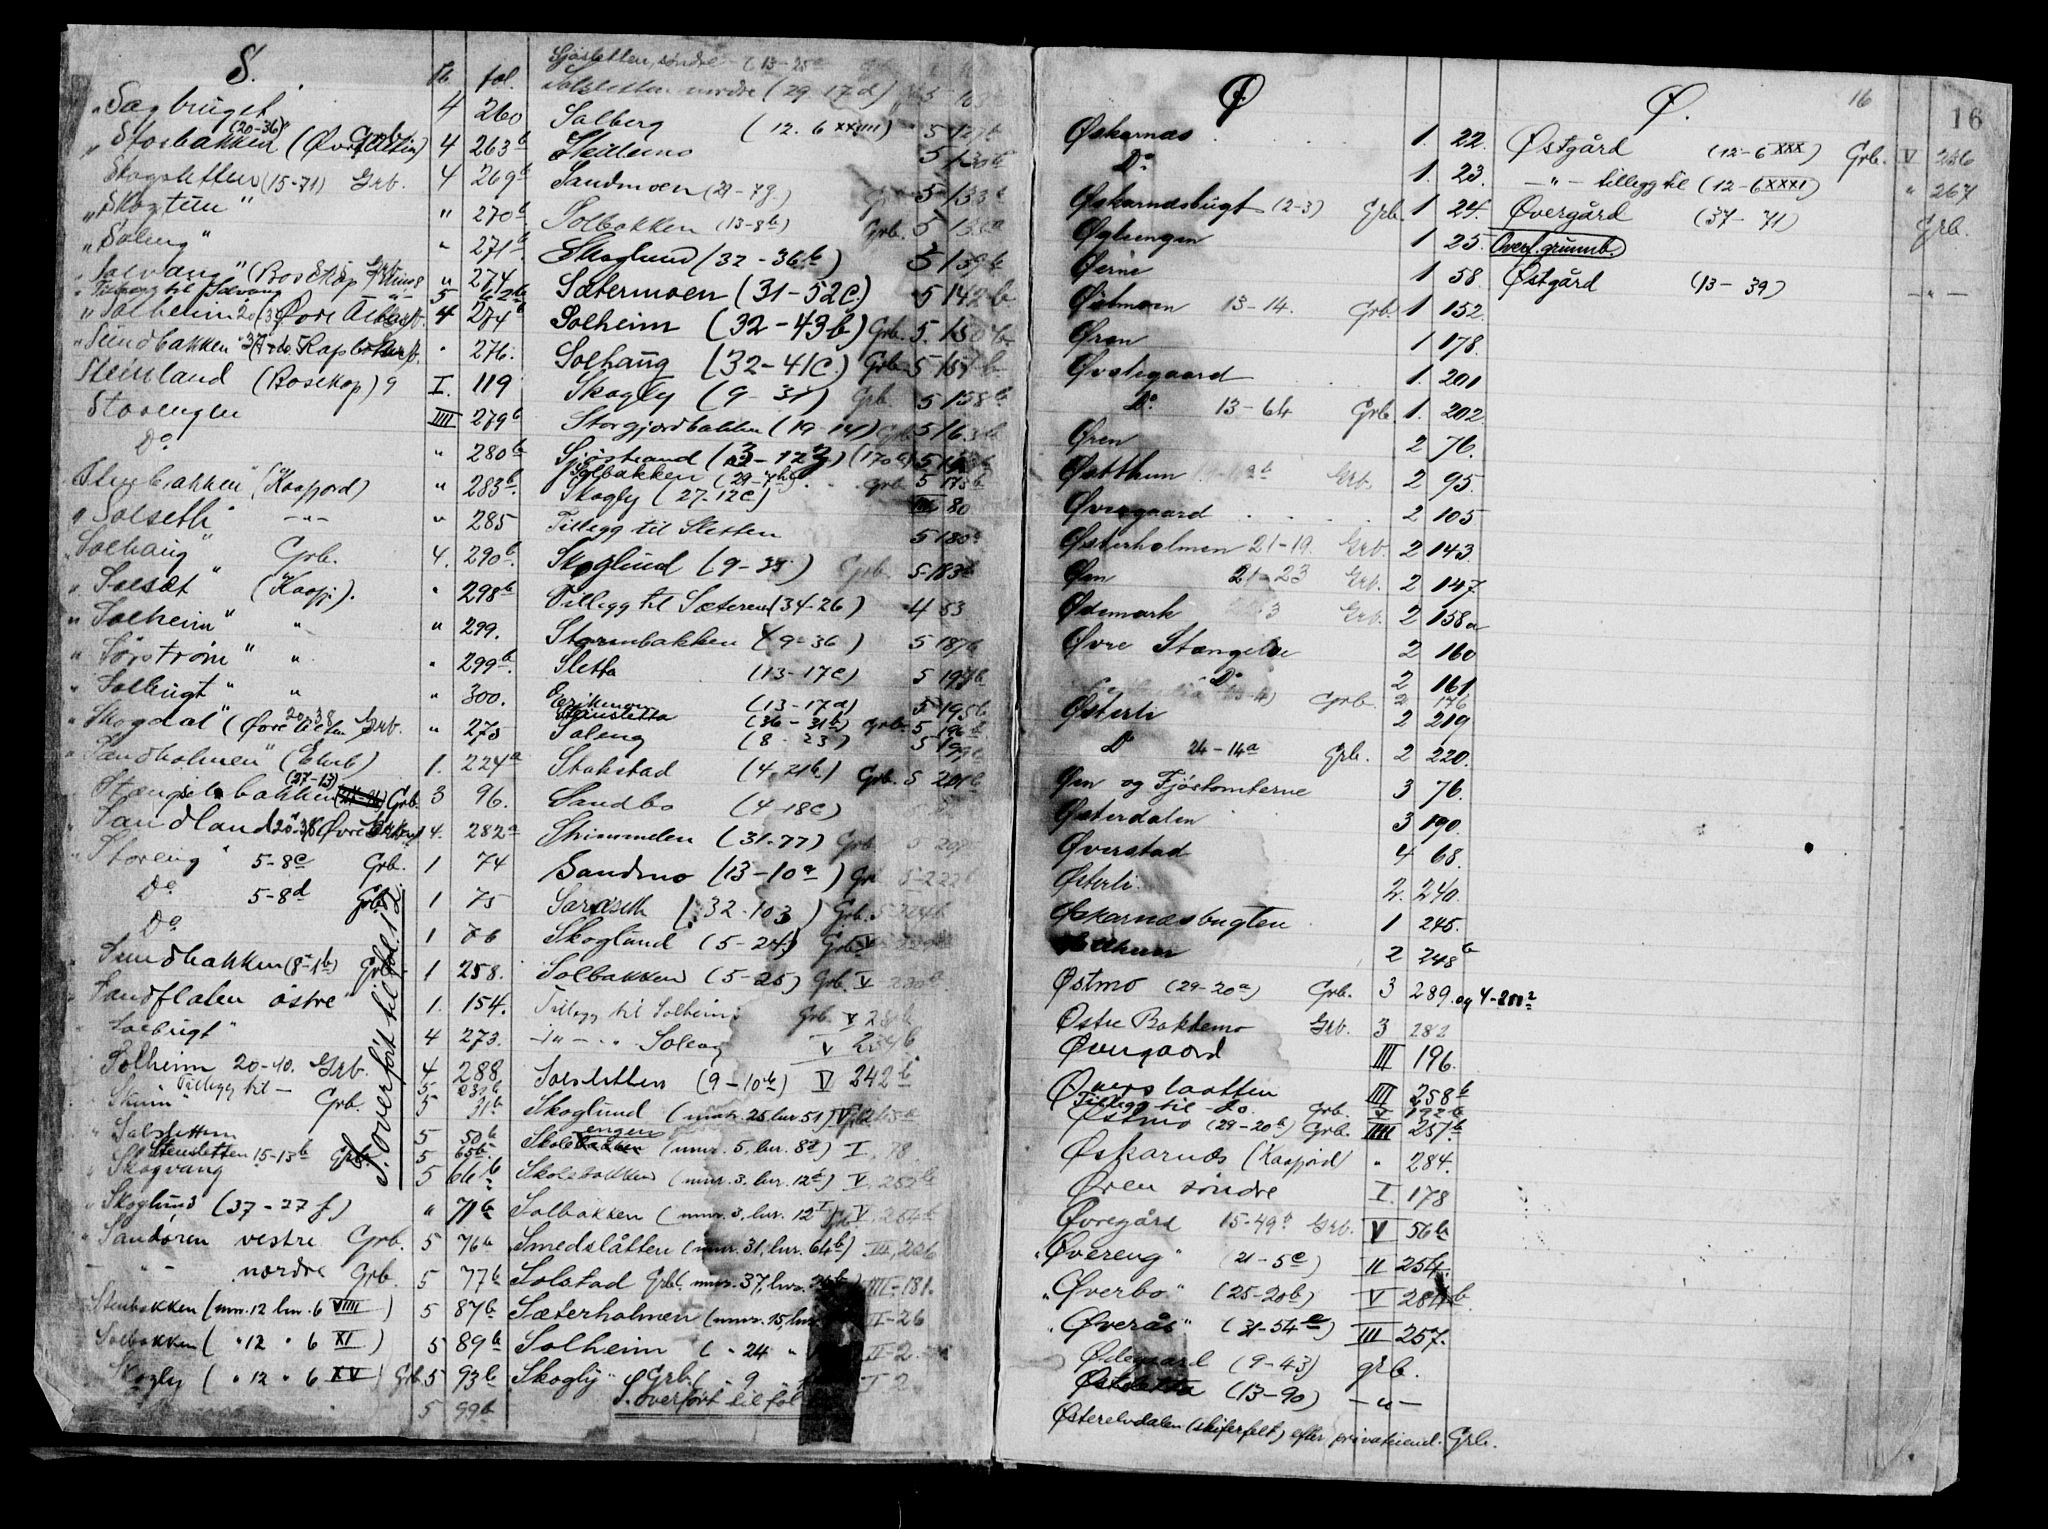 S.
fb. fol.
"Sagbruget 4 260
"Storbakken (20-36) (Øvre Alten) Grb. 4 263b
Skogsletten (15-71) Grb. 4 269b
"Skogtun" " 270b
"Soleng" " 271b
"Solvang" (Bosekop) Grb. " 274
Tillegg til Solvang 5
"Solheim 20 (Øvre Alten) 4 274b
"Sundbakken " 276.
Steinland (Bosekop) 9 I. 119
Storengen IIII 279b
Do " 280b
Stenbakken" (Kaafjord) " 283b.
"Solseth -"- " 285
"Solhaug" Grb. 4. 290b.
"Solset" (Kaafj.) " 298b
"Solheim" " " 299.
"Sørstrøm" " " 299b.
"Solbugt" " " 300.
"Skogdal" (Øvre Alten 20-38) Grb. " 275
"Sandholmen" (Elvb) 1. 224a
Stængselsbakken (27-13) Grb. 3 96.
"Sandland (Øvre Alten) 4. 282a
"Storeng" 5-8c Grb. 1 74
Do 5-8d Grb. 1 75
Do 1 76
"Sundbakken (8-1b) Grb. 1 258.
"Sandflaten østre" 1. 154.
"Solbugt" 4 273.
Solheim 20-10. Grb. 4 288
Tillegg til - 5 232b
Grb. 5 31b
"Solsletten 5 50b
Stensletten 15-13b Grb. 5 65b.
"Skogvang 5 66b
"Skoglund (37-27f.) " 71b
"Sandøren vestre Grb. 5 76b
- " - nordre Grb. 5 77b
Stenbakken (mnr. 12 lnr. 6 VIIII) 5 87b
Solbakken ( " 12 " 6 XI) 5 89b
Skogly ( " 12 " 6 XV) Grb. 5 93b
5 99b
S. overført til fol. 12
Sjøsletten, søndre (13-25c
Solsletten nordre (29-17d)
Solberg (12. 6 XXIII) 5
Skillemo 5 130b
Sandmoen (29-7g.) 5 133b
Solbakken (13-8b) Grb. 5
Skoglund (32-36b) 5 139b
Sætermoen (31-52c.) 5 142b
Solheim (32-43b) Grb. 5. 150b.
Solhaug (32-41c) Grb. 5 157b
Skogly (9-31) Grb. 5 158b
Storgjordbakken (19-14) 5 163b
Sjøstrand (3-12g) 5
Solbakken (29-7h) Grb. 5 175b
Skogly (27-12c) III 80
Tillegg til Sletten 5 180a
Skoglund (9-35) Grb. 5-183b
Tillegg til Sæteren (34-26) 4 53
Stormbakken (9-36) 5 187b
Sletta (13-17c) 5 194b
Erikmo (13-17d) 5 195b
Stensletta (36-31b) Grb. 5 196b
Soleng (8-23) 5 199b
Stakstad (4, 21b) Grb. 5 201b
Sandbo (4-18c)
Skimmelen (31-77) Grb.
Sandmo (13-10a) Grb. 5-222b
Saraseth (32-103) Grb. 5-224b
Skoglund (5-24) Grb. V
Solbakken (5-25) Grb. V
Tillegg til Solheim Grb. V
-"- Solvang V 234b
Solsletten (9-10b) V 242b
Skoglund (mnr. 25, lnr. 51) V
Skoleengen (mnr. 5, lnr. 8d) I, 78
Skolebakken (mnr. 3. lnr. 12c) V. 252b
Solbakken (mnr. 3, lnr. 12 I) V. 254b
Smedslåtten (mnr. 31, lnr. 64b) III, 256
Solstad Grb (mnr. 37, lnr.) IIII-181.
Sæterholmen (mnr. 15, lnr. II-26
Solheim ( " 24 " II-2.
Skogly" Grb ( " 9 I 2
S. overført til fol
Ø.
Øskarnæs 1. 22.
Do 1. 23.
Øskarnæsbugt (2-3) Grb. 1 24.
Øgtungen 1 25.
Øerne 1 58.
Østmoen 13-14. Grb. 1 152.
Øren 1 178.
Øvstegaard 1. 201
Do 13-64 Grb. 1. 202.
Øren 2 76.
Østthun Grb. 2 95.
Øvregaard 2 105
Østerholmen 21-19. Grb. 2 143.
Øen 21-23 Grb. 2 147.
Ødemark 3 Grb. 2 158a
Øvre Stængelse 2 160
Do 2 161
Grb. 2 176
Østerli 2 219
Do 24-14a Grb. 2 220.
Øen og Fjøstomterne 3 76.
Østerdalen 3 190.
Øverstad 4 68.
Østerli 2. 240.
Øskarnæsbugten 1 245.
2 248b
Østmo (29-20a) Grb. 3 289. og 4-200a
Østre Bakkemo Grb. 3 282
Øvergaard III 196.
Øverslaatten III 258b
Tillegg til do. Grb. 5 192b
Østmo (29-20b) Grb. IIII 257b
Øskarnæs (Kaafjord) " 284.
Øren søndre I. 178
Øvregård 15-49b Grb. V 56b
"Øvereng" (21-5c) II 254.
"Øverbo" (25-20b) V 284b.
"Øverås" (31-54e) III 257.
Ødegaard (9-43) grb.
Østsletta (13-90) -"-
Østerelvdalen (skiferfelt) efter privateiend. Grb.
Ø.
16
16
Østgård (12-6 XXX) Grb. V 266
-"- tillegg til (12-6 XXXI) " 267
Øvergård (37-71) Grb.
Overf. grunnb.
Østgård (13-39) -"-